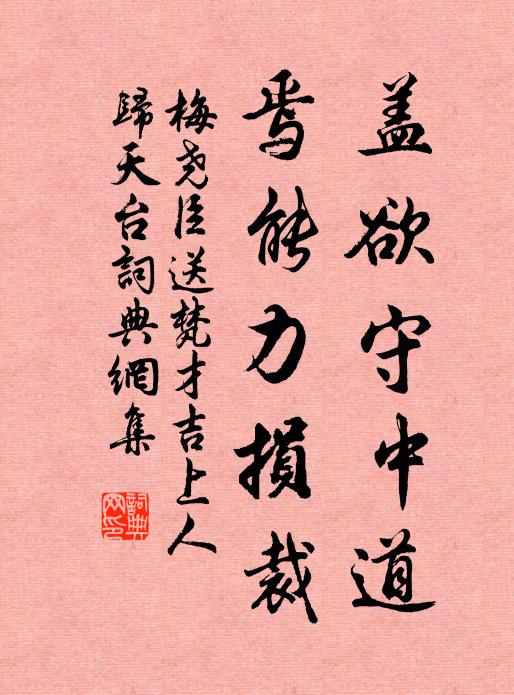 盖欲守中道
焉能力損裁
梅尧臣送梵才吉上人
歸天台詞典網集
詞典
网印